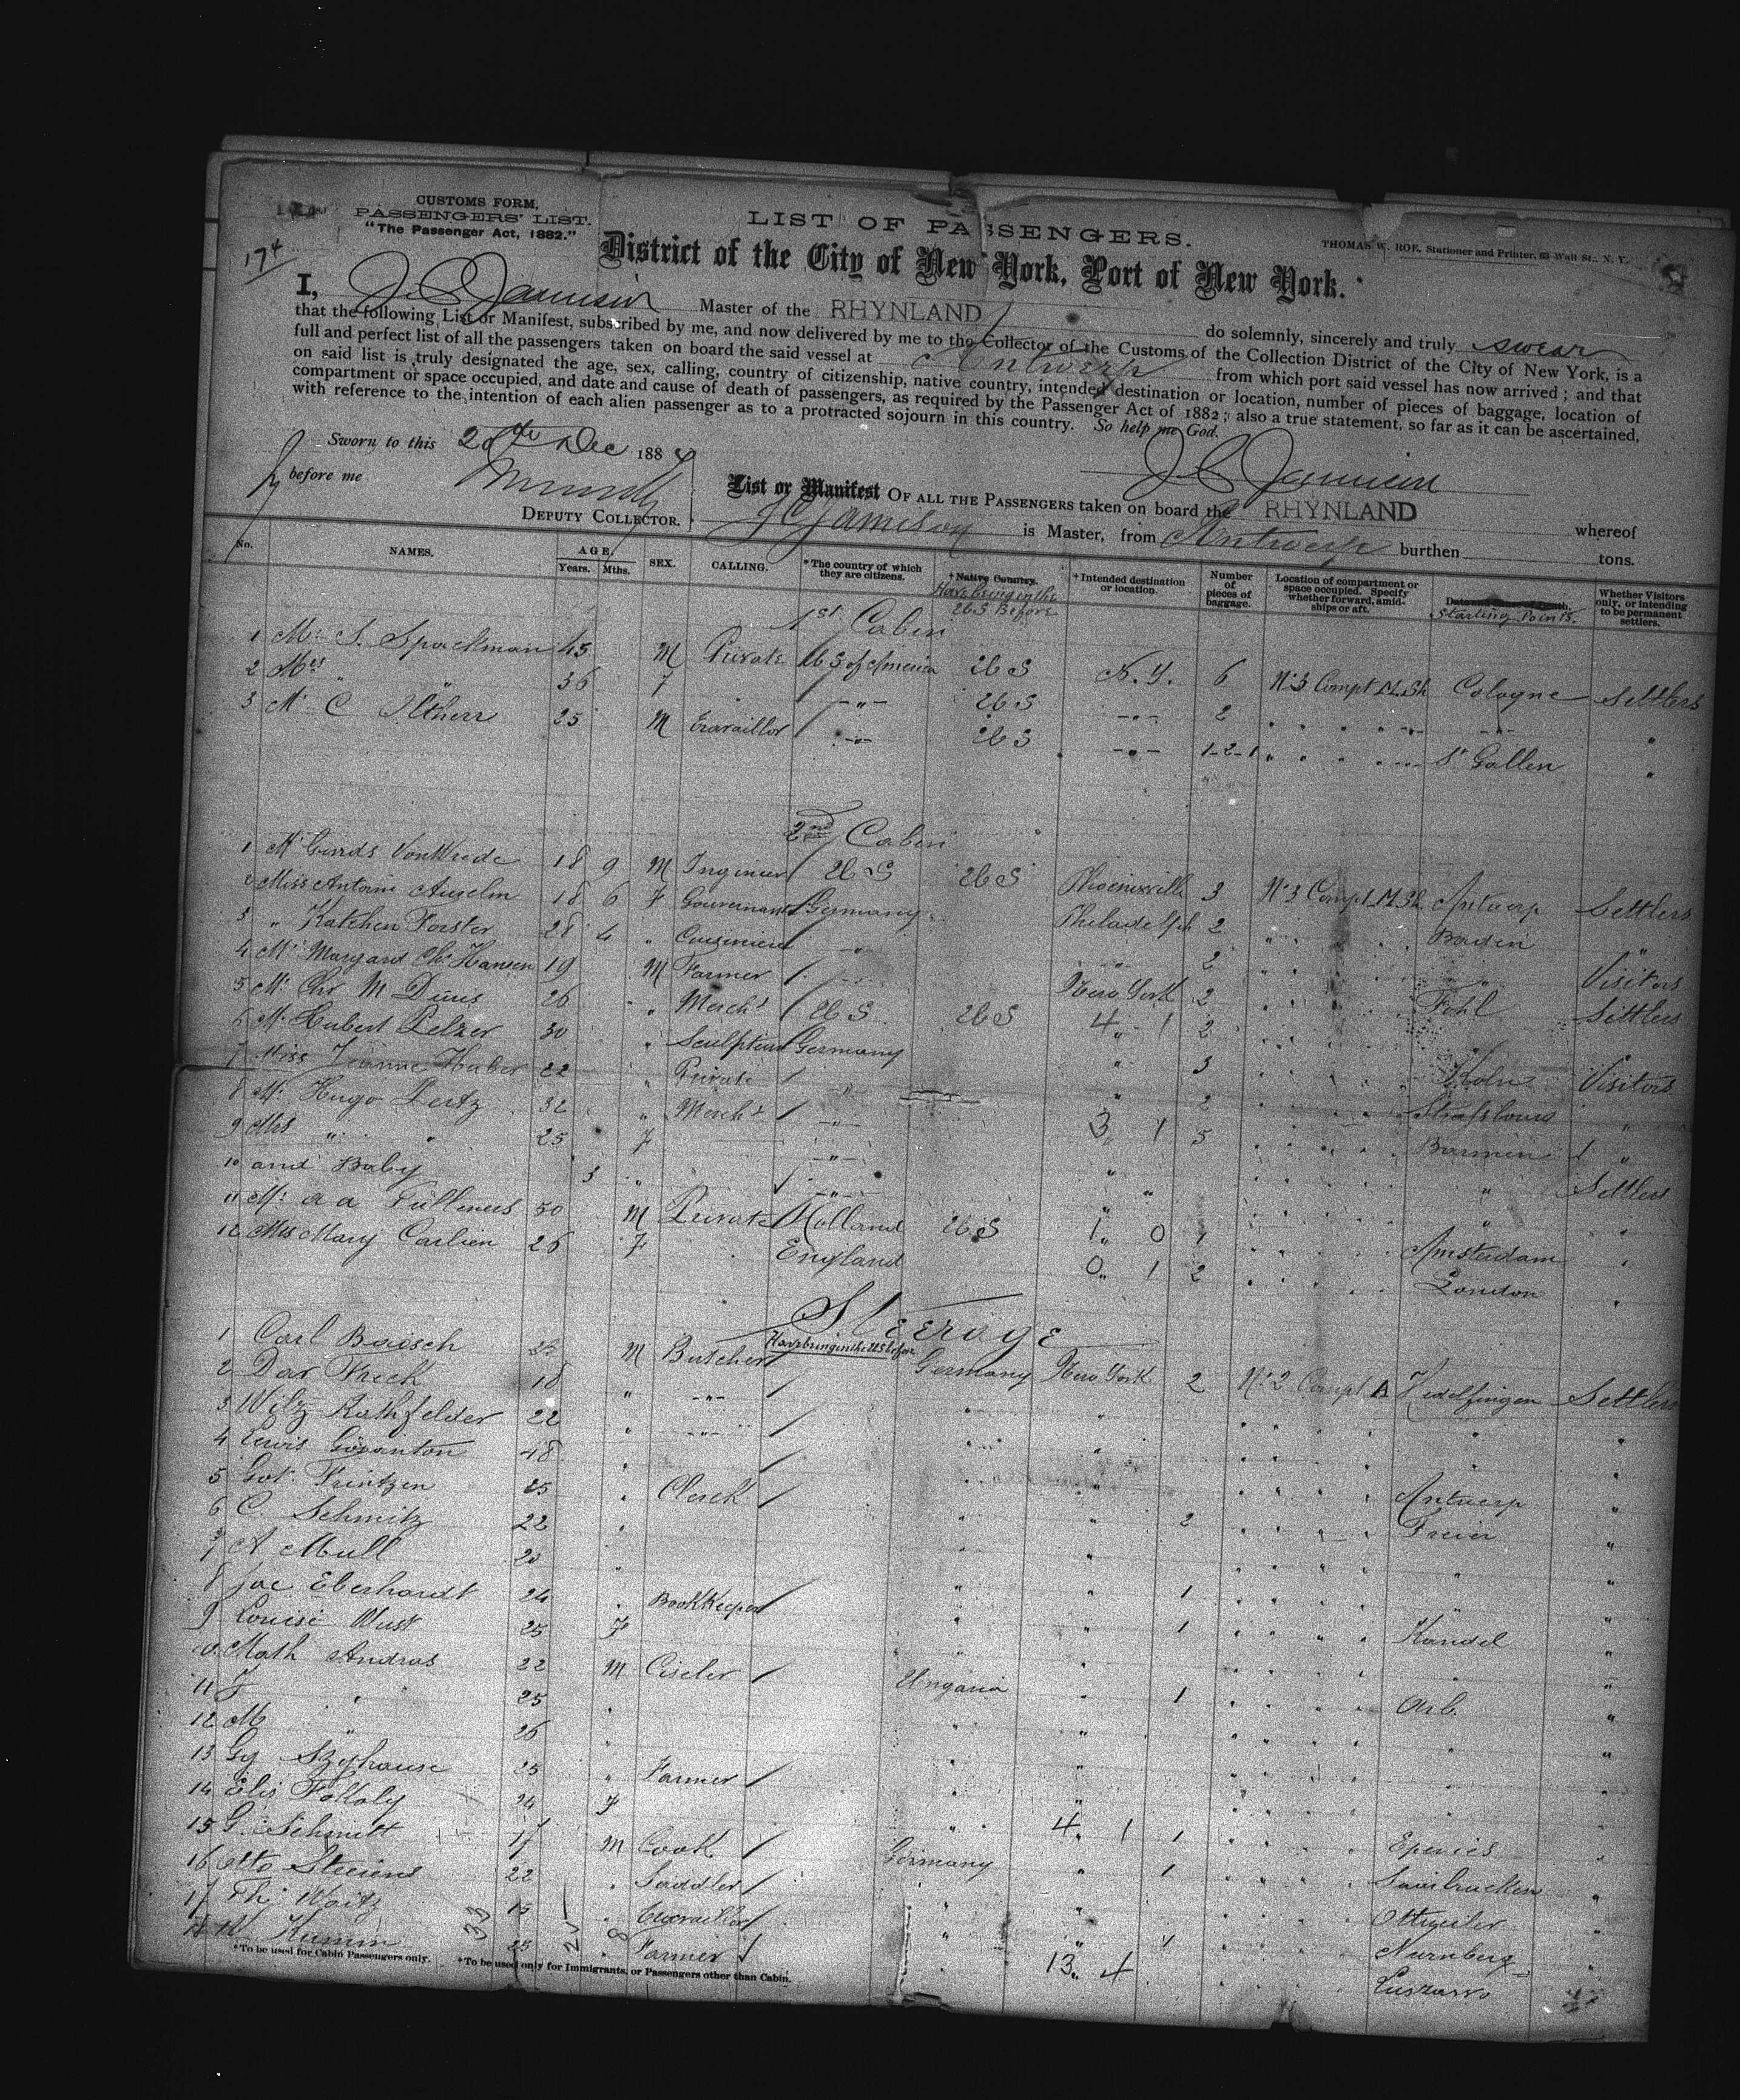 CUSTOMS FORM,
PASSENGERS' LIST.
"The Passenger Act, 1882."
174
LIST OF PASSENGERS.
THOMAS W. ROE, Stationer and Printer, 63 Wall St., N. Y.
District of the City of New York, Port of New York.
I, J C Jamison Master of the RHYNLAND do solemnly, sincerely and truly swear
that the following List or Manifest, subscribed by me, and now delivered by me to the Collector of the Customs of the Collection District of the City of New York, is a
full and perfect list of all the passengers taken on board the said vessel at Antwerp from which port said vessel has now arrived; and that
on said list is truly designated the age, sex, calling, country of citizenship, native country, intended destination or location, number of pieces of baggage, location of
compartment or space occupied, and date and cause of death of passengers, as required by the Passenger Act of 1882; also a true statement, so far as it can be ascertained,
with reference to the intention of each alien passenger as to a protracted sojourn in this country. So help me God.
Sworn to this Dec 188
J C Jamison
before me
DEPUTY COLLECTOR.
List or Manifest OF ALL THE PASSENGERS taken on board the RHYNLAND whereof
J C Jamison is Master, from Antwerp burthen tons.
No. NAMES. AGE. Years. Mths. SEX. CALLING. *The country of which they are citizens. †Native Country. †Intended destination or location. Number of pieces of baggage. Location of compartment or space occupied. Specify whether forward, amidships or aft. Date and Cause of Death. Whether Visitors only, or intending to be permanent settlers.
Have being in the U S Before
Starting Points.
1st Cabin
1 Mr S. Spackman 45 M Private U S of America U S N. Y. 6 No 3 Compt M. Sh Cologne Settlers
2 Mrs " " 36 F -"- U S -"- 2 -"- "
3 Mr C 25 M Travaillor -"- U S -"- 1-2-1 St Gallen "
2nd Cabin
1 Mr VonWrede 18 9 M Ingenieur U S U S Phoenixville 3 No 3 Compt M Sh. Antwerp Settlers
2 Miss Antoine Anselm 18 6 F Gouvernant Germany Philadelph 2 Baden "
3 " Katchen Forster 28 4 " Cuisiniere -"- 2 " Visitors
4 Mr Margard Chr Hansen 19 M Farmer New York 2 Fohl Settlers
5 Mr Chr M 26 " Mercht U S U S 4 " 1 2
6 Mr Hubert Pelzer 30 " Sculpteur Germany " 3 Koln Visitors
7 Miss Jeanne Huber 22 " Private " " 2 Strassbourg "
8 Mr Hugo Pertz 32 " Mercht -"- 3 1 5 Barmen "
9 Mrs " " 25 F -"- " " Settlers
10 and Baby 3 " -"- " "
11 Mr a a 50 M Private Holland U S 1 0 1 Amsterdam "
12 Mrs Mary Carlien 26 F England 0 1 2 London "
Steerage
Have being in the U S before
1 Carl M Butcher Germany New York 2 No 2 Compt A Hedelfingen Settlers
2 Dav 18 " -"- " " " "
3 Rathfelder 22 " -"- " " " "
4 Lewis 48 " " " Antwerp "
5 Got. Frintzen 25 " Clerck " " 2 "
6 C. Schmitz 22 " " " " "
7 A Mull 20 " " " 1 " "
8 Jac Eberhardt 24 " Bookkeeper " " 1 Kandel "
9 Louise Wust 25 F " " " "
10 Math Andras 22 M Ciseler Ungaria " 1 "
11 J " 25 " " " " "
12 M " 26 " " " " "
13 Gy 25 " Farmer " " " "
14 Elis 24 F " 4 " 1 1 "
15 G. Schmitt 17 M Cook Germany " 1 Saarbrucken "
16 Otto 22 " Saddler " " Ottweiler "
17 Th. Waitz 15 " Travaillor " " 1 Nurnberg "
18 Kumm 23 " Farmer " 13 " 4
*To be used for Cabin Passengers only. †To be used only for Immigrants, or Passengers other than Cabin.